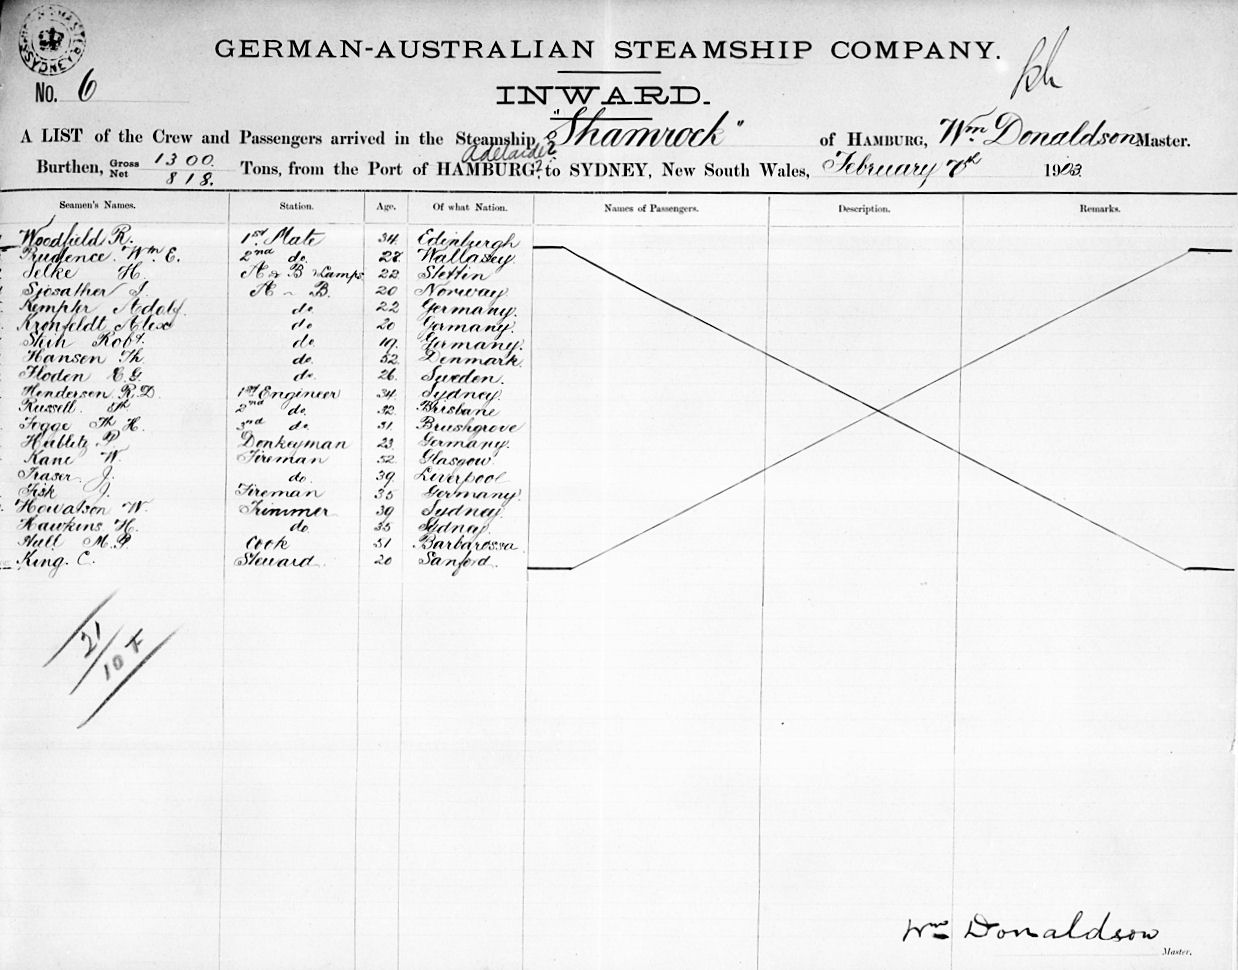 GERMAN-AUSTRALIAN STEAMSHIP COMPANY.
No. 6
INWARD.
A LIST of the Crew and Passengers arrived in the Steamship "Shamrock" of HAMBURG, Wm Donaldson Master.
Burthen, Gross 1300 Net 818. Tons, from the Port of HAMBURG Adelaide to SYDNEY, New South Wales, February 7th 1903.
Seamen's Names. Station. Age. Of what Nation. Names of Passengers. Description. Remarks.
Woodfield R. 1st Mate 34 Edinburgh
Prudence Wm E. 2nd do. 28. Wallasey.
Selke H. A & B & Lamps 22 Stettin
Sjosather J. A - B. 20 Norway.
Kempfer Adolf. do 22 Germany.
Kronfeldt Alex do 20 Germany.
Robt. do. 19. Germany.
Hansen Th do. 52 Denmark.
Floden C. G. do. 26. Sweden.
Henderson R. D. 1st Engineer 34. Sydney.
Russell. 2nd do. 32. Brisbane
Fogge Th H. 3rd do. 31. Brushgrove
P. Donkeyman 23. Germany.
Kane W. Fireman 52 Glasgow
Fraser. J. do. 39. Liverpool
Fisk J. Fireman 35 Germany.
Howatson W. Trimmer 39 Sydney.
Hawkins H. do. 35 Sydney.
Hull M. P. Cook 51 Barbarossa
King. C. Steward. 20 Sanford.
21
10 F
Wm Donaldson
Master.